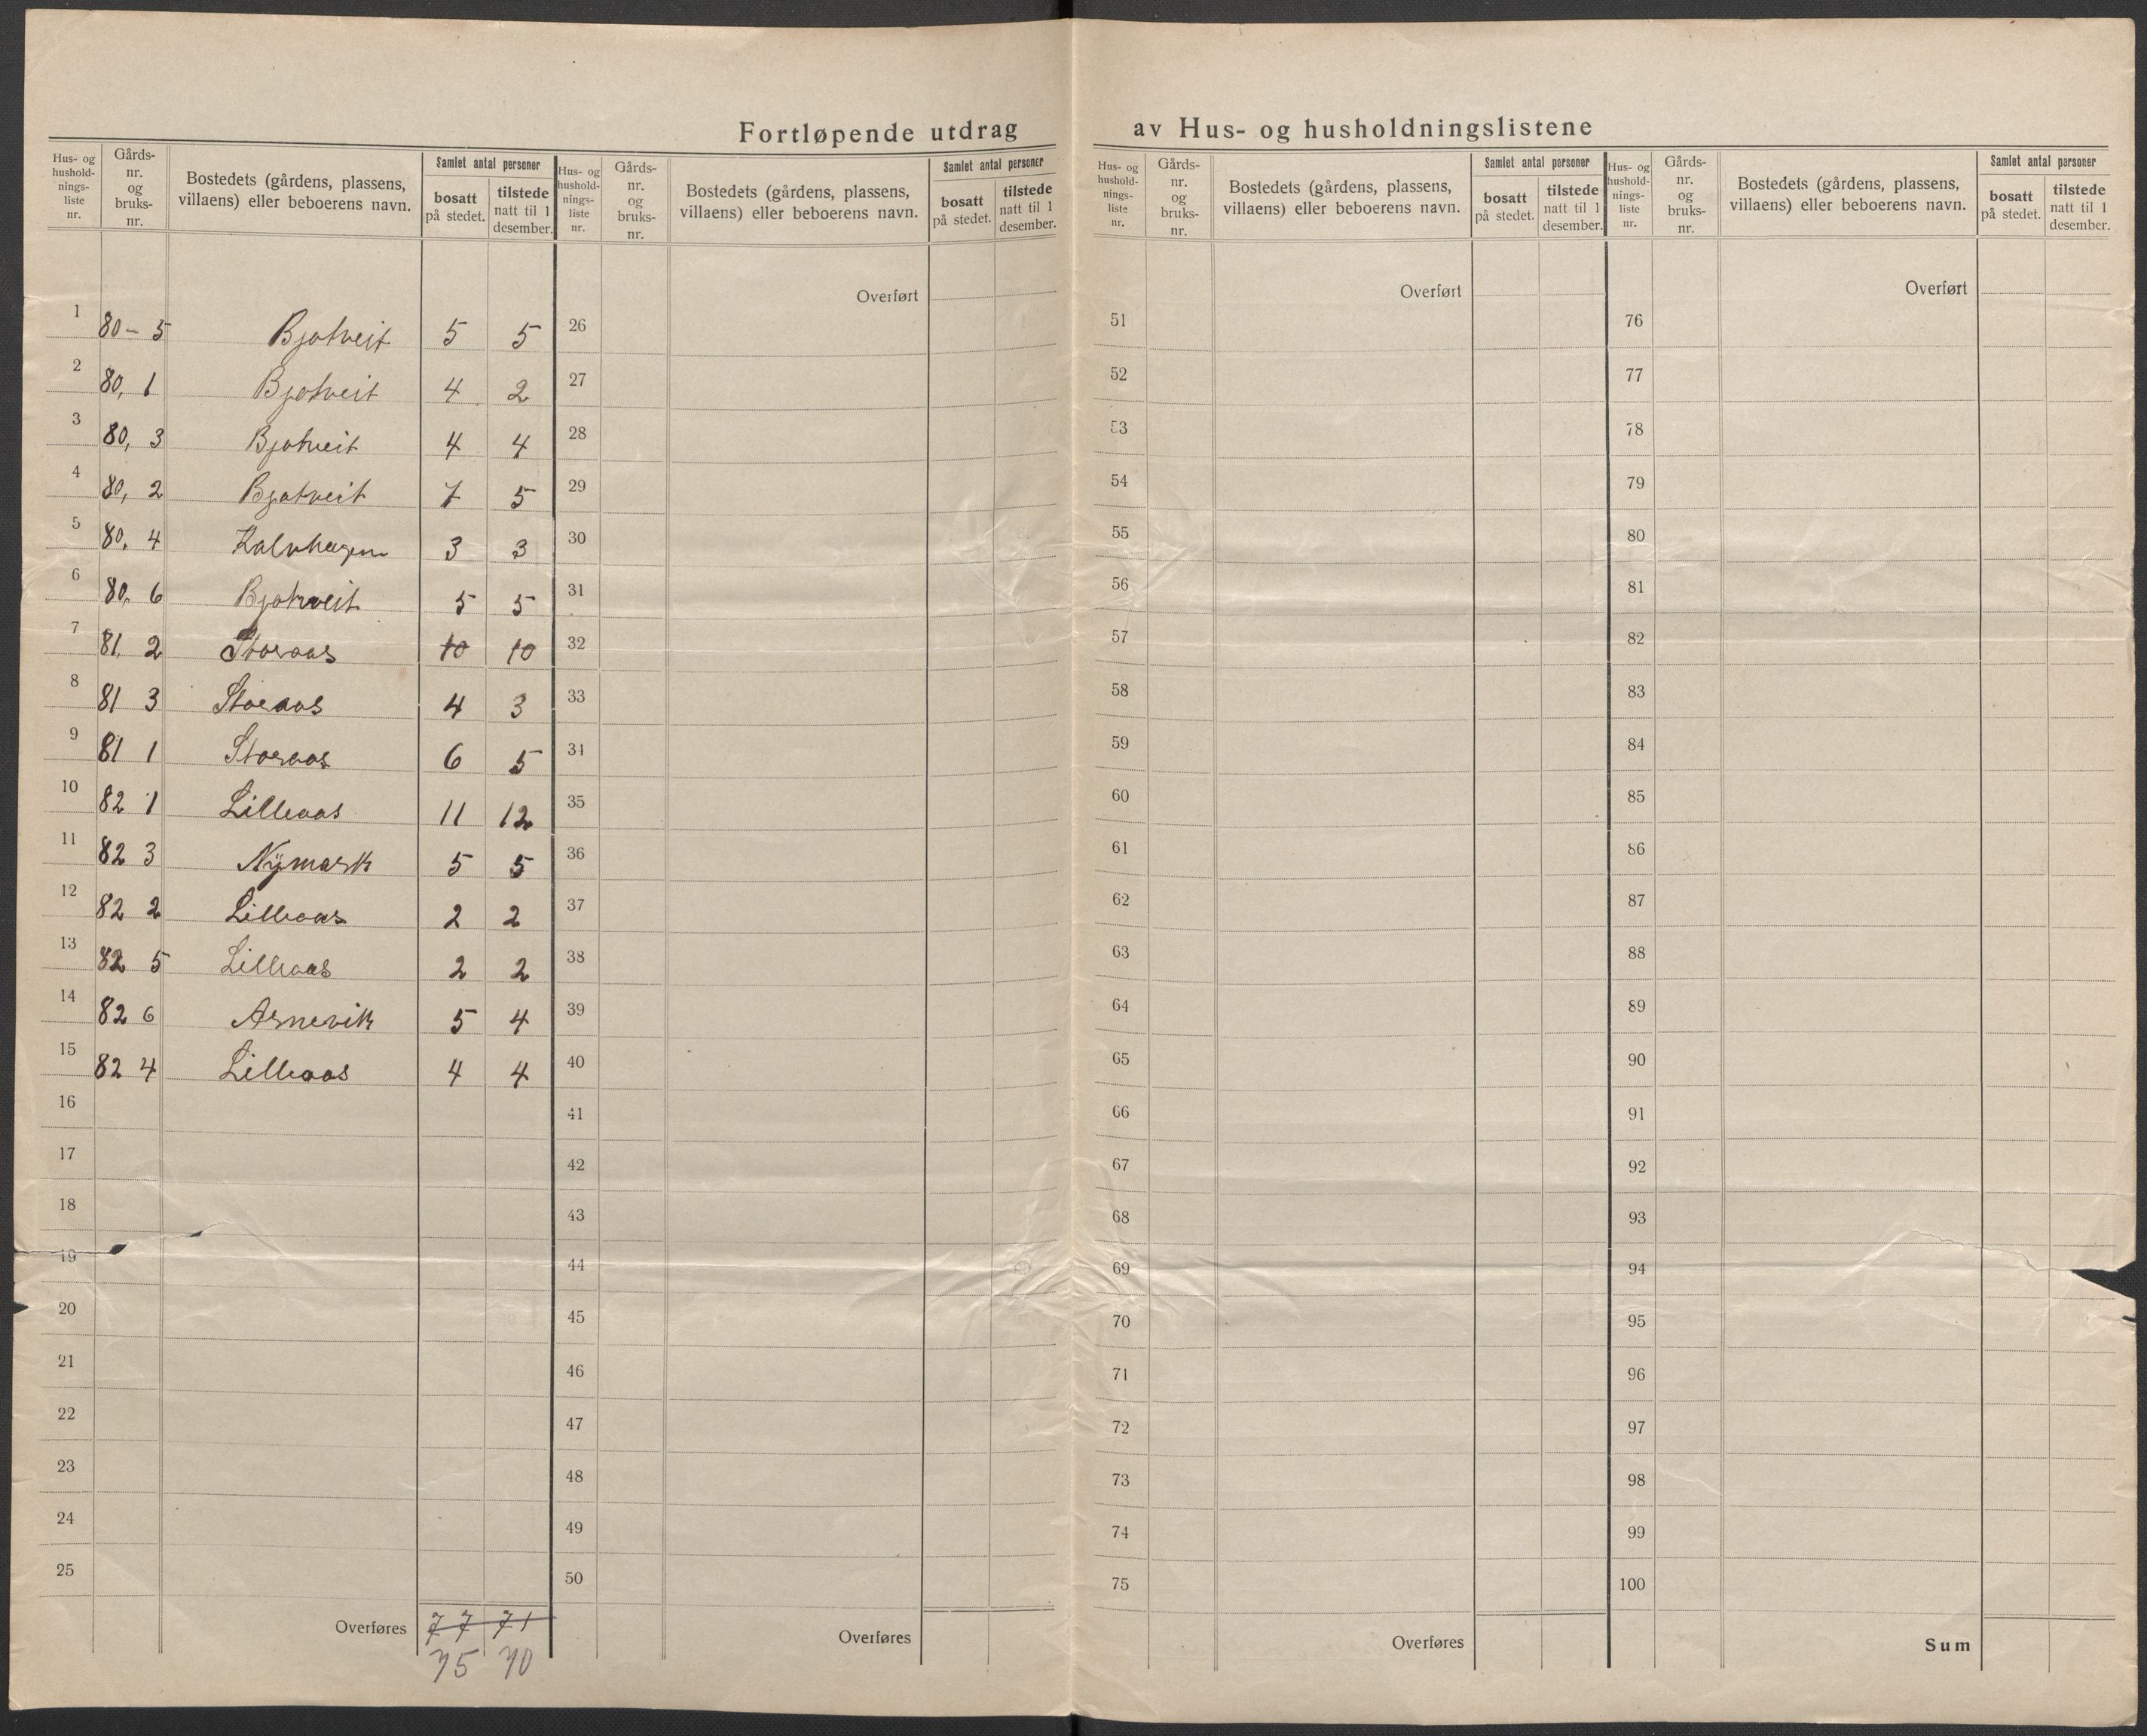 Fortløpende utdrag av Hus- og husholdningslistene
Hus- og husholdnings- liste nr. Gårds- nr. og bruks- nr. Bostedets (gårdens, plassens, villaens) eller beboerens navn. Samlet antal personer bosatt på stedet. tilstede natt til 1 desember.
1 80 – 5 Bjotveit 5 5
2 80, 1 Bjotveit 4 2
3 80, 3 Bjotveit 4 4
4 80, 2 Bjotveit 7 5
5 80, 4 Kalvhagen 3 3
6 80, 6 Bjotveit 5 5
7 81, 2 Storaas 10 10
8 81 3 Storaas 4 3
9 81 1 Storaas 6 5
10 82 1 Lilleaas 11 12
11 82 3 Nymark 5 5
12 82 2 Lilleaas 2 2
13 82 5 Lilleaas 2 2
14 82 6 Arnevik 5 4
15 82 4 Lilleaas 4 4
16
17
18
19
20
21
22
23
24
25
Overføres 77 71
75 70
Hus- og husholdnings- liste nr. Gårds- nr. og bruks- nr. Bostedets (gårdens, plassens, villaens) eller beboerens navn. Samlet antal personer bosatt på stedet. tilstede natt til 1 desember.
Overført
26
27
28
29
30
31
32
33
31
35
36
37
38
39
40
41
42
43
44
45
46
47
48
49
50
Overføres
Hus- og husholdnings- liste nr. Gårds- nr. og bruks- nr. Bostedets (gårdens, plassens, villaens) eller beboerens navn. Samlet antal personer bosatt på stedet. tilstede natt til 1 desember.
Overført
51
52
53
54
55
56
57
58
59
60
61
62
63
64
65
66
67
68
69
70
71
72
73
74
75
Overføres
Hus- og husholdnings- liste nr. Gårds- nr. og bruks- nr. Bostedets (gårdens, plassens, villaens) eller beboerens navn. Samlet antal personer bosatt på stedet. tilstede natt til 1 desember.
Overført
76
77
78
79
80
81
82
83
84
85
86
87
88
89
90
91
92
93
94
95
96
97
98
99
100
Sum